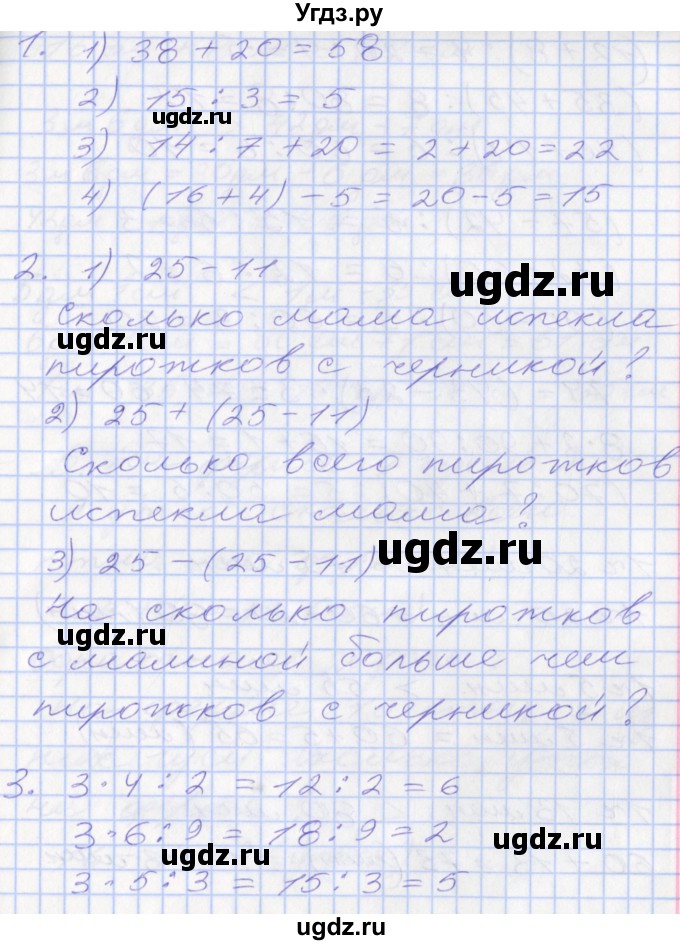 Угдз.ру
1. 1) 38 + 20 = 58
2) 15 : 3 = 5
ugdz.ru
3) 14 : 7 + 20 = 2 + 20 = 22
4) (16 + 4) - 5 = 20 - 5 = 15
2. 1) 25 - 11
ugdz.ru
Сколько мама испекла
ugdz.ru
пирожков с черникой?
2) 25 + (25 - 11)
Сколько всего пирожков
ugdz.ru
испекла мама?
ugdz.ru
3) 25 - (25 - 11)
На сколько пирожков
ugdz.ru
с малиной больше чем
пирожков с черникой?
3. 3 · 4 : 2 = 12 : 2 = 6
3 · 6 : 9 = 18 : 9 = 2
ugdz.ru
3 · 5 : 3 = 15 : 3 = 5
ugdz.ru